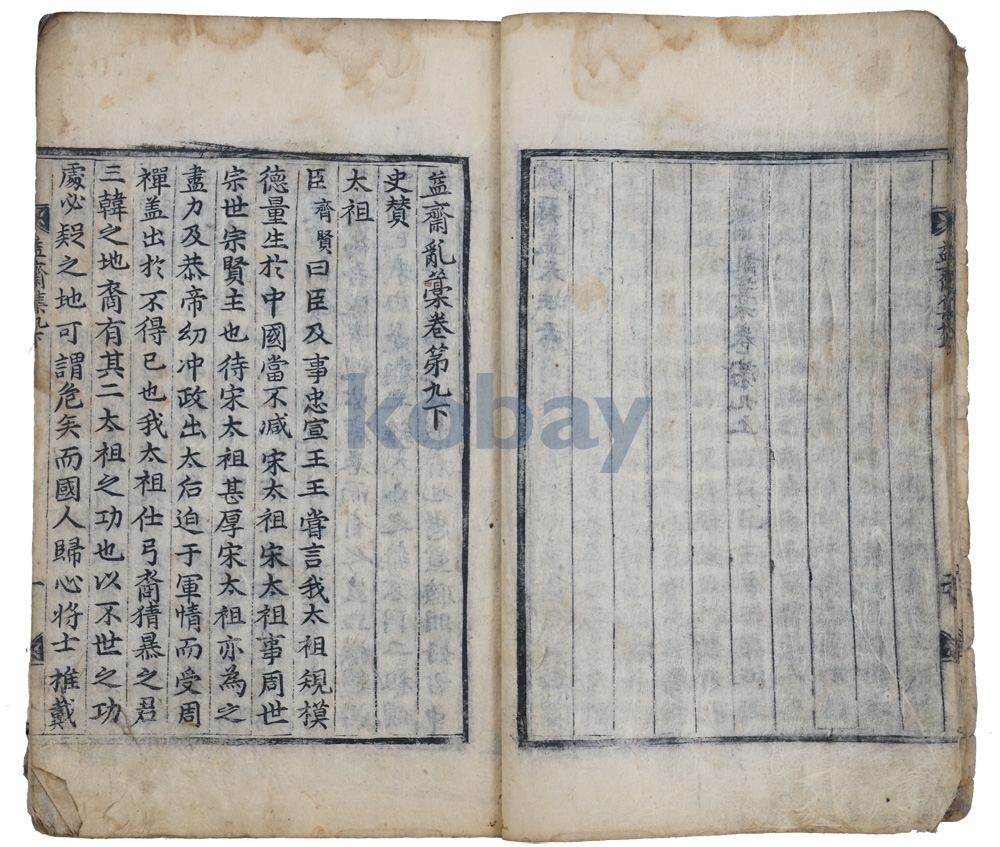 益齋亂藁卷第九下
史賛
太祖
臣齊賢曰臣及事忠宣王王甞言我太祖規模
德量生於中國當不减宋太祖宋太祖事周世
宗世宗賢主也待宋太祖甚厚宋太祖亦為之
盡力及恭帝幼冲政出太后迫于軍情而受周
禪盖出於不得已也我太祖仕弓裔猜暴之君
三韓之地裔有其二太祖之功也以不世之功
處必疑之地可謂危矣而國人歸心将士推戴
益齋集九下
一
kobay